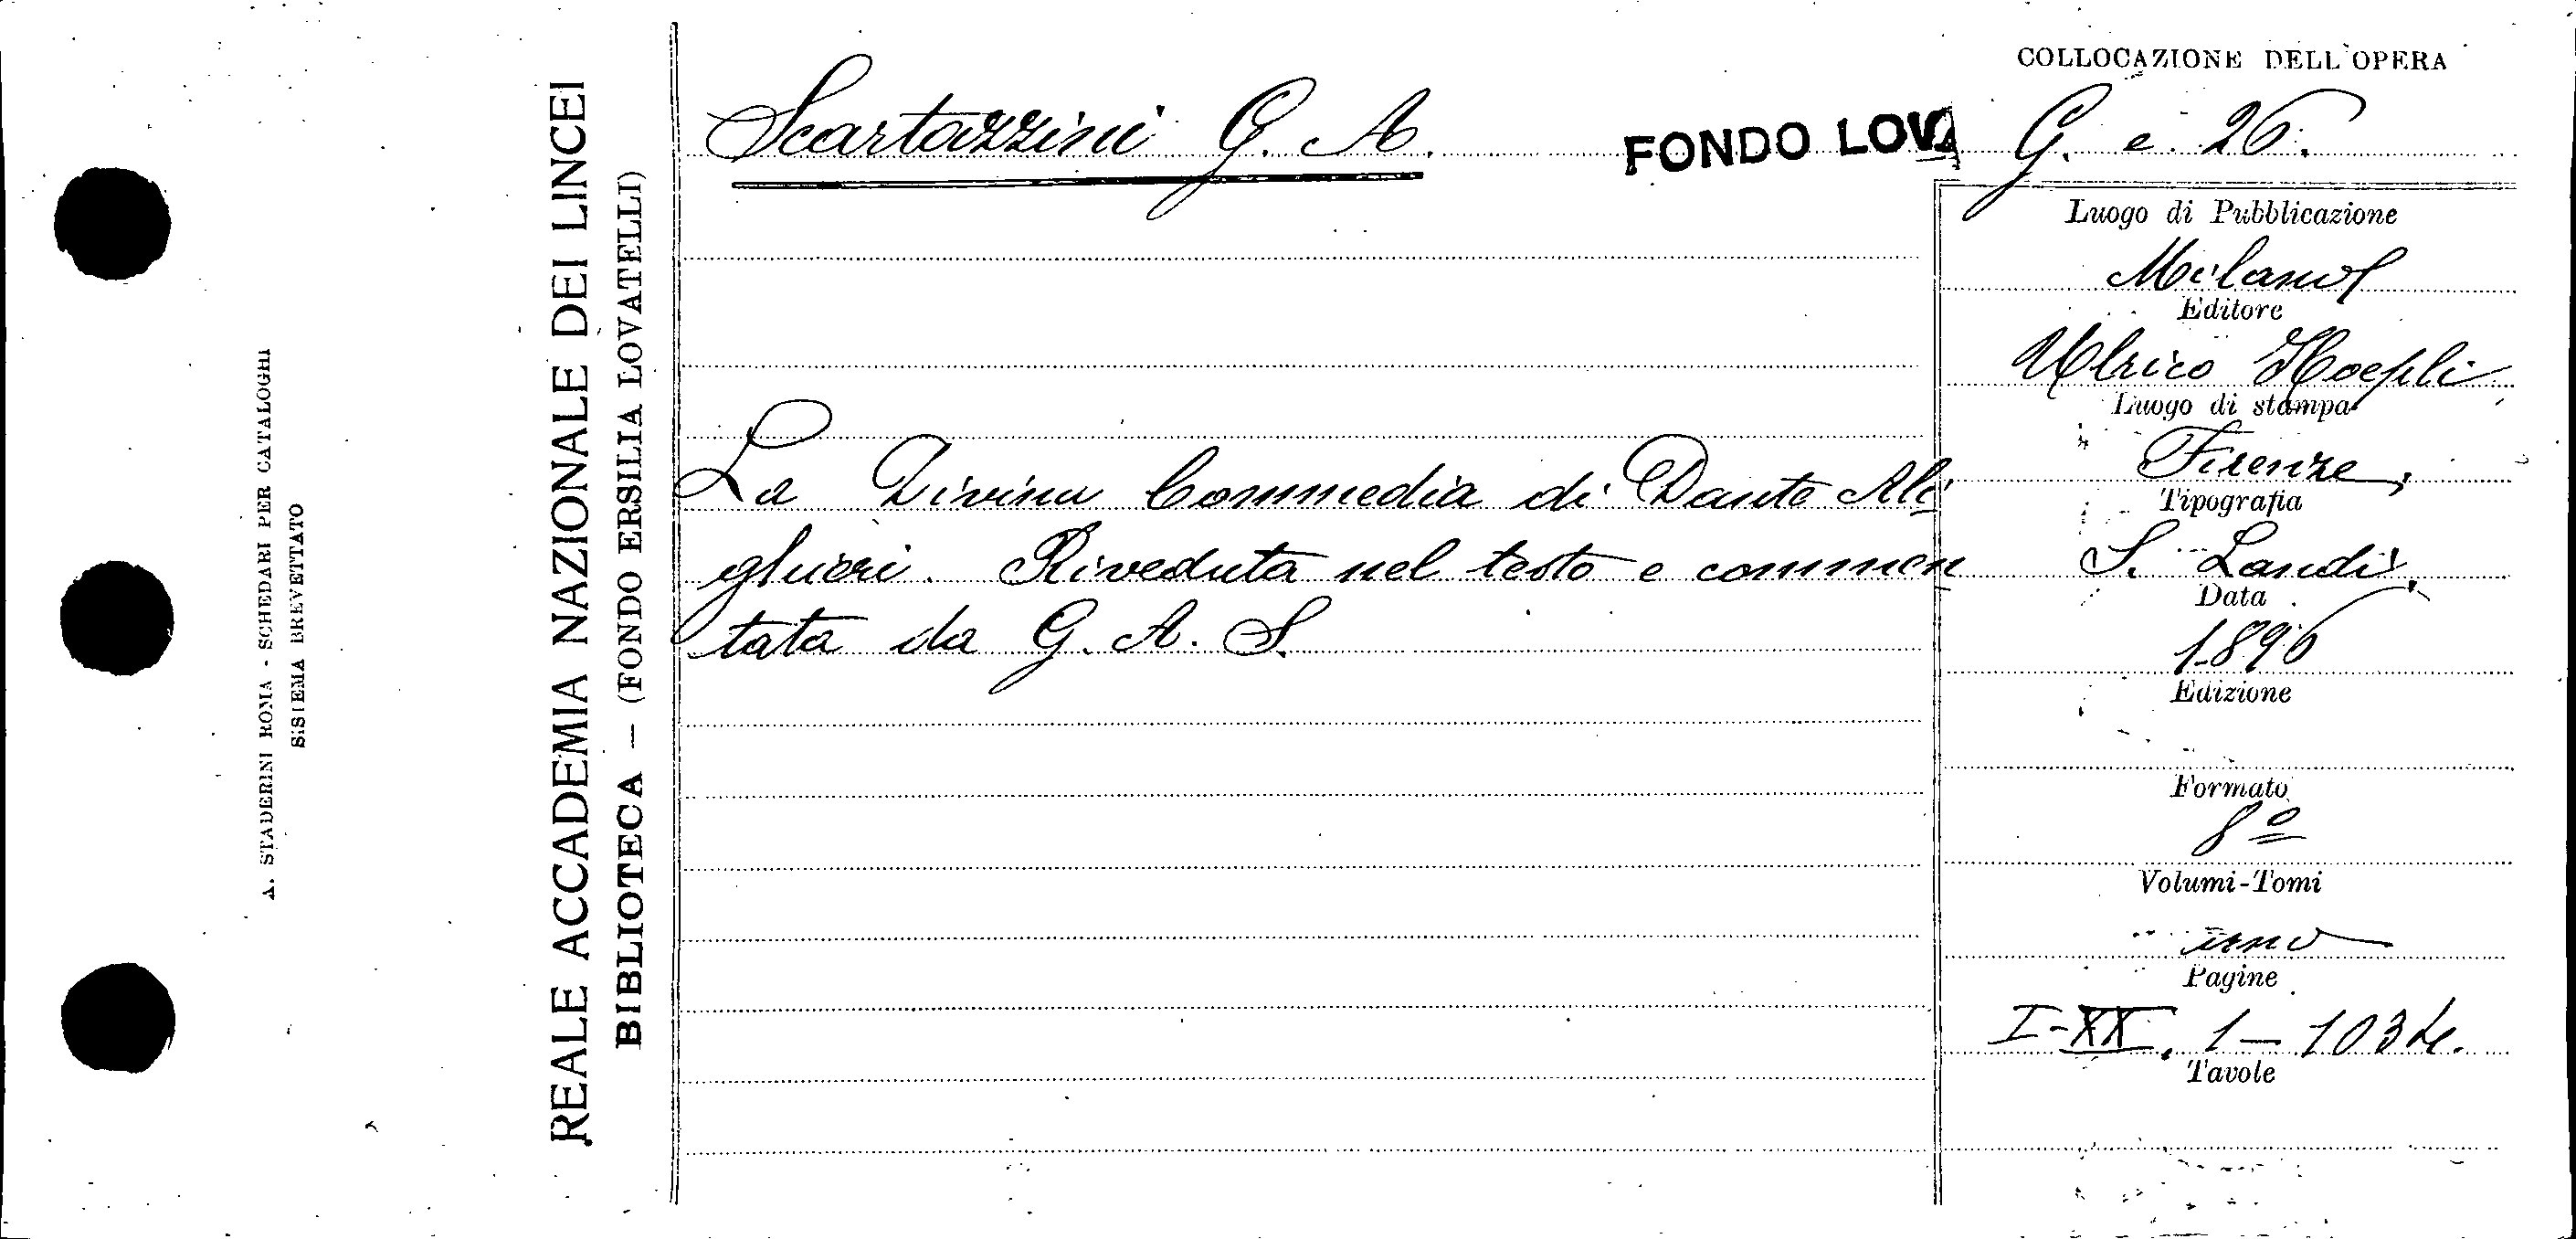 A. STADERINI ROMA - SCHEDARI PER CATALOGHI
SISTEMA BREVETTATO
REALE ACCADEMIA NAZIONALE DEI LINCEI
BIBLIOTECA — (FONDO ERSILIA LOVATELLI)
Scartazzini G. A.
FONDO LOVA
La Divina Commedia di Dante Ali
ghieri. Riveduta nel testo e commen
tata da G. A. S.
COLLOCAZIONE DELL'OPERA
G. e. 26.
Luogo di Pubblicazione
Milano
Editore
Ulrico Hoepli
Luogo di stampa
Firenze,
Tipografia
S. Landi,
Data
1896
Edizione
Formato
8º
Volumi-Tomi
uno
Pagine
I-XX, 1-1034.
Tavole